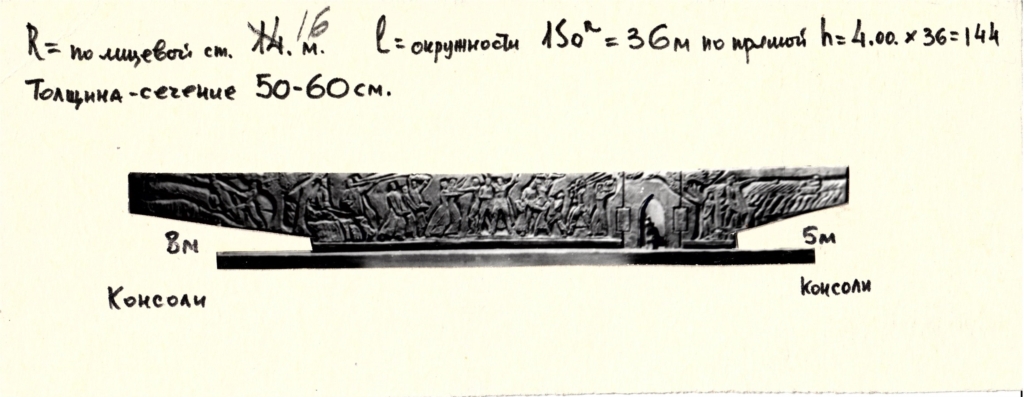 R = по лицевой ст. 14. 16 м. l = окружности 150° = 36м по прямой h = 4.00. × 36 = 144
Толщина-сечение 50-60см.
8м 5м
Консоли Консоли